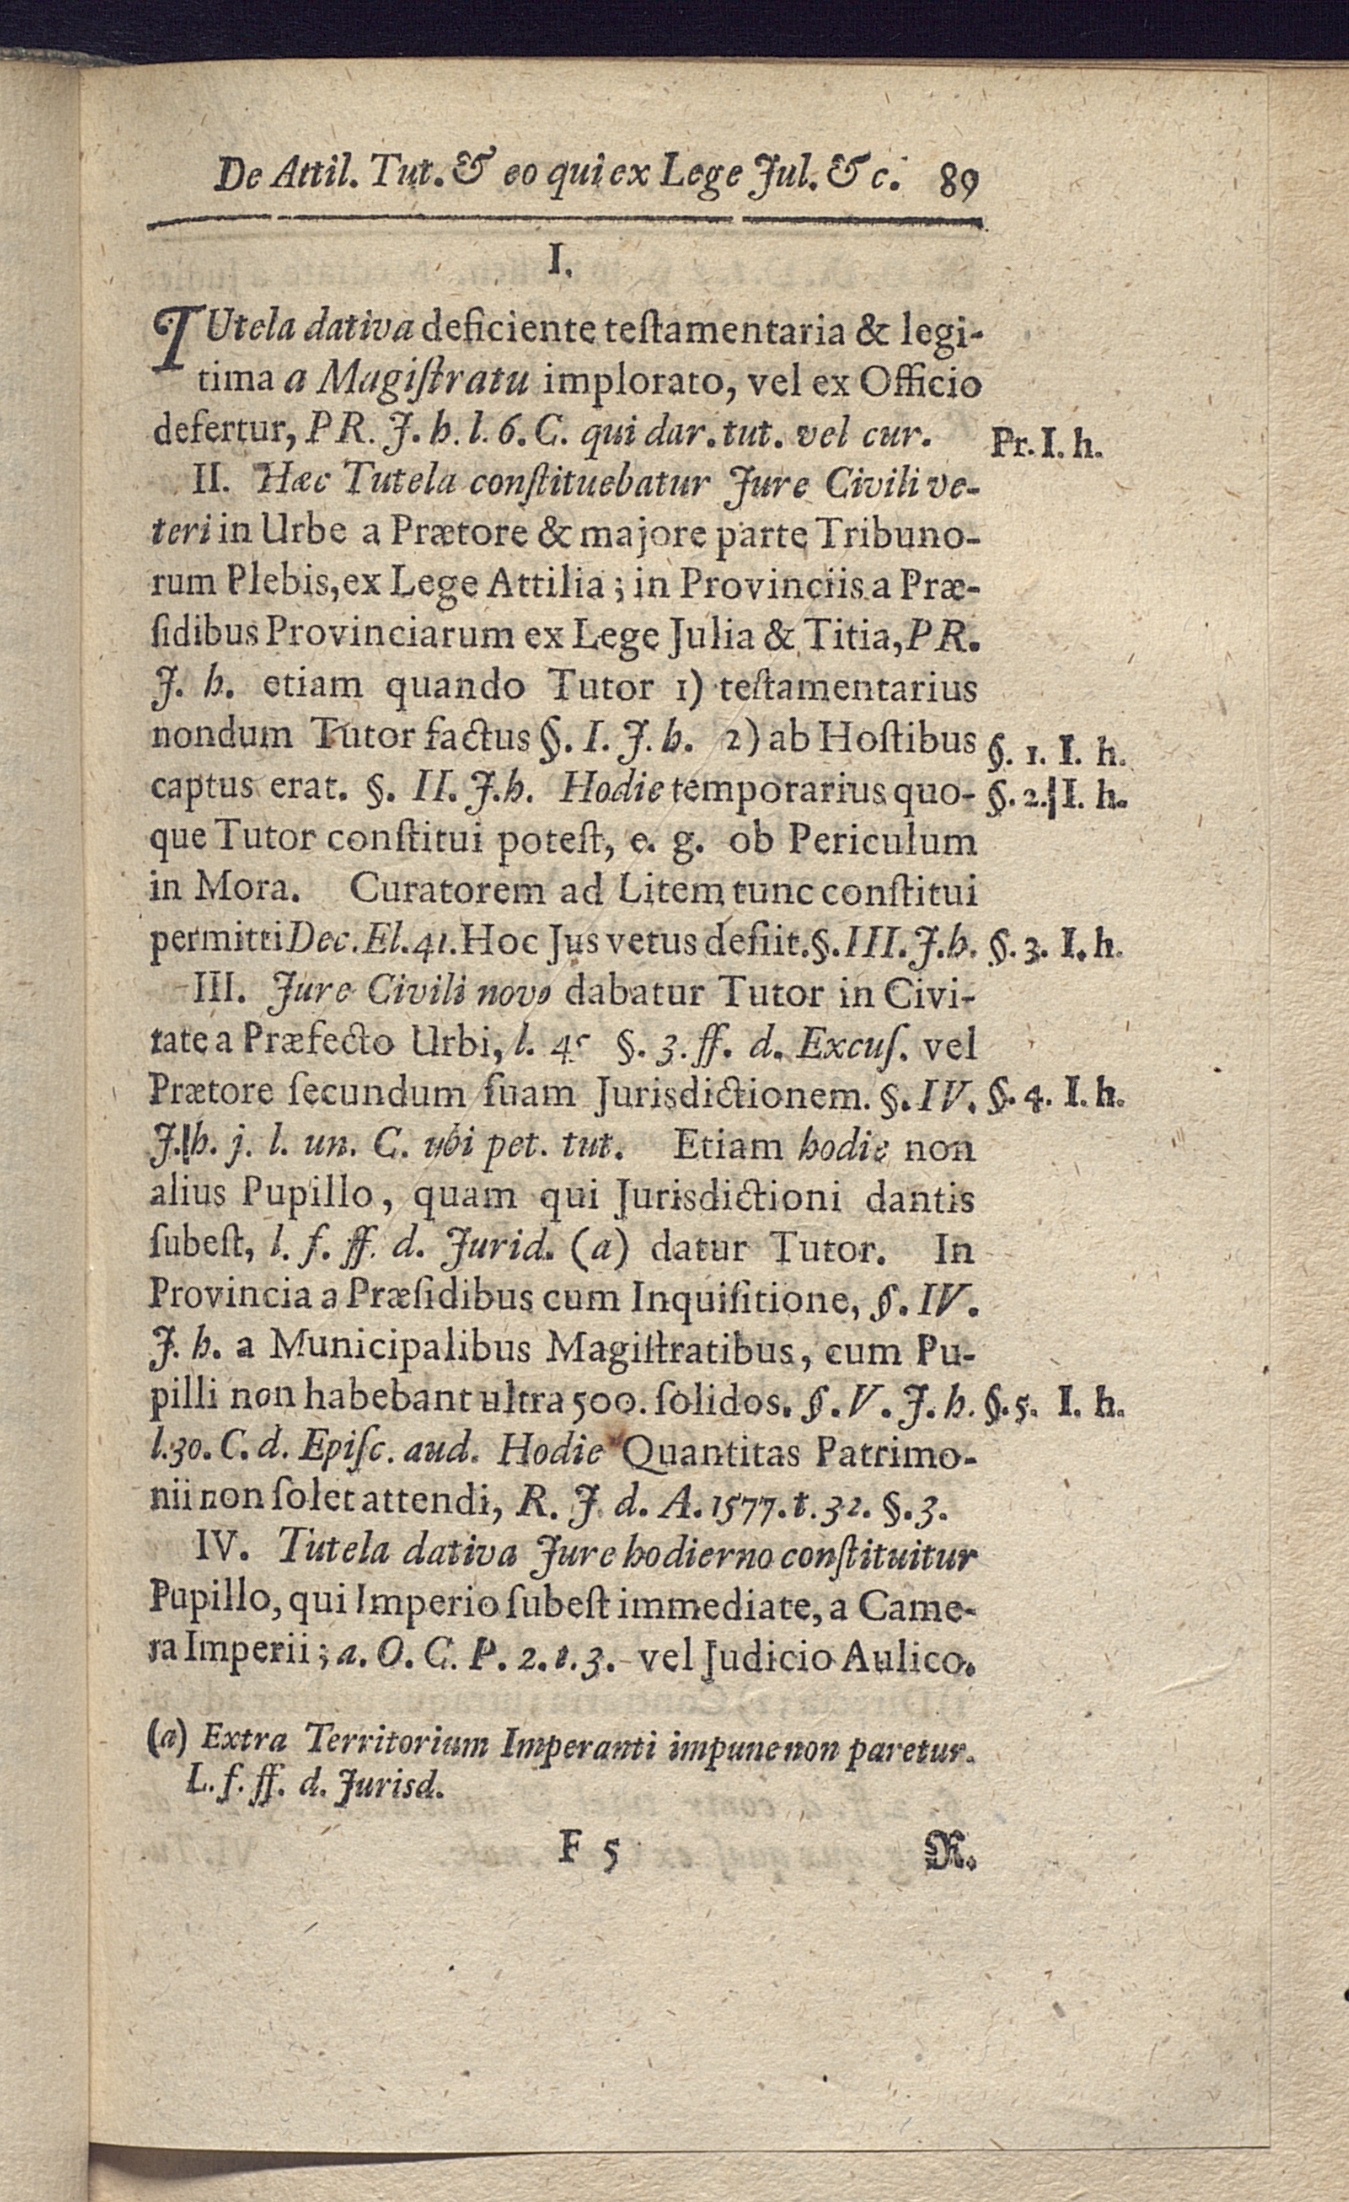 De Attil. Tut. & eo qui ex Lege Jul. & c. 89
I.
TUtela dativa deficiente teſtamentaria & legi-
tima a Magiſtratu implorato, vel ex Officio
defertur, PR. J. h. l. 6. C. qui dar. tut. vel cur. Pr. I. h.
II. Hæc Tutela conſtituebatur Jure Civili ve-
teri in Urbe a Prætore & majore parte Tribuno-
rum Plebis, ex Lege Attilia; in Provinciis a Præ-
ſidibus Provinciarum ex Lege Julia & Titia, PR.
J. h. etiam quando Tutor 1) teſtamentarius
nondum Tutor factus §. I. J. h. 2) ab Hoſtibus §. 1. I. h.
captus erat. §. II. J. h. Hodie temporarius quo- §. 2. I. h.
que Tutor conſtitui poteſt, e. g. ob Periculum
in Mora. Curatorem ad Litem tunc conſtitui
permitti Dec. El. 41. Hoc Jus vetus deſiit. §. III. J. h. §. 3. I. h.
III. Jure Civili novo dabatur Tutor in Civi-
tate a Præfecto Urbi, l. §. 3. ff. d. Excuſ. vel
Prætore ſecundum ſuam Jurisdictionem. §. IV. §. 4. I. h.
J. h. j. l. un. C. ubi pet. tut. Etiam hodie non
alius Pupillo, quam qui Jurisdictioni dantis
ſubeſt, l. f. ff. d. Jurid. (a) datur Tutor. In
Provincia a Præſidibus cum Inquiſitione, §. IV.
J. h. a Municipalibus Magiſtratibus, cum Pu-
pilli non habebant ultra 500. ſolidos. §. V. J. h. §. 5. I. h.
l. 30. C. d. Epiſc. aud. Hodie Quantitas Patrimo-
nii non ſolet attendi, R. J. d. A. 1577. t. 32. §. 3.
IV. Tutela dativa Jure hodierno conſtituitur
Pupillo, qui Imperio ſubeſt immediate, a Came-
ra Imperii; a. O. C. P. 2. t. 3. vel Judicio Aulico.
(a) Extra Territorium Imperanti impune non paretur.
L. f. ff. d. Jurisd.
F 5 R.